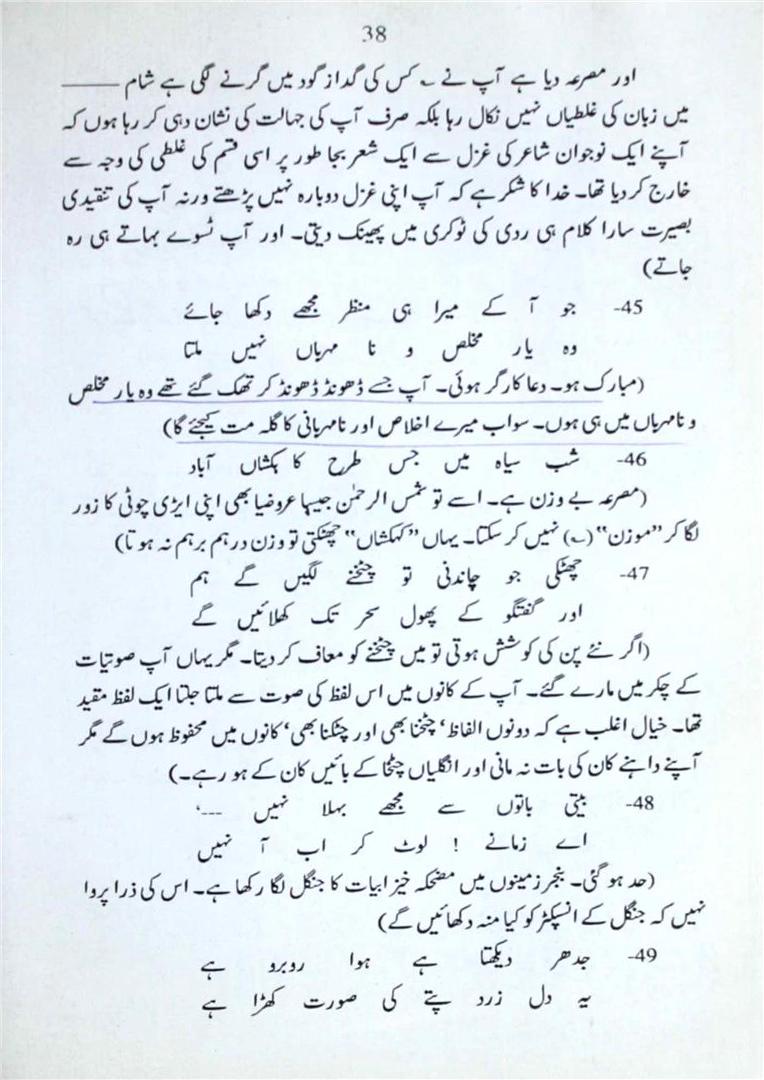 38
اور مصرعہ دیا ہے آپ نے ؎ کس کی گداز گود میں گرنے لگی ہے شام ———
میں زبان کی غلطیاں نہیں نکال رہا بلکہ صرف آپ کی جہالت کی نشان دہی کر رہا ہوں کہ
آپنے ایک نوجوان شاعر کی غزل سے ایک شعر بجا طور پر اسی قسم کی غلطی کی وجہ سے
خارج کر دیا تھا۔ خدا کا شکر ہے کہ آپ اپنی غزل دوبارہ نہیں پڑھتے ورنہ آپ کی تنقیدی
بصیرت سارا کلام ہی ردی کی ٹوکری میں پھینک دیتی۔ اور آپ ٹسوے بہاتے ہی رہ
جاتے)
45- جو آ کے میرا ہی منظر مجھے دکھا جائے
وہ یار مخلص و نا مہرباں نہیں ملتا
(مبارک ہو۔ دعا کارگر ہوئی۔ آپ جسے ڈھونڈ ڈھونڈ کر تھک گئے تھے وہ یار مخلص
و نامہرباں میں ہی ہوں۔ سو اب میرے اخلاص اور نامہربانی کا گلہ مت کیجئے گا)
46- شب سیاہ میں جس طرح کا ہکشاں آباد
(مصرعہ بے وزن ہے۔ اسے تو شمس الرحمٰن جیسا عروضیا بھی اپنی ایڑی چوٹی کا زور
لگا کر ”موزن“ (؎) نہیں کر سکتا۔ یہاں ”کہکشاں“ چھنکتی تو وزن درہم برہم نہ ہوتا)
47- چھٹکی جو چاندنی تو چٹخنے لگیں گے ہم
اور گفتگو کے پھول سحر تک کھلائیں گے
(اگر نئے پن کی کوشش ہوتی تو میں چٹخنے کو معاف کر دیتا۔ مگر یہاں آپ صوتیات
کے چکر میں مارے گئے۔ آپ کے کانوں میں اس لفظ کی صوت سے ملتا جلتا ایک لفظ مقید
تھا۔ خیال اغلب ہے کہ دونوں الفاظ ’چٹخنا بھی اور چٹکنا بھی‘ کانوں میں محفوظ ہوں گے مگر
آپنے داہنے کان کی بات نہ مانی اور انگلیاں چٹخا کے بائیں کان کے ہو رہے۔)
48- بیتی باتوں سے مجھے بہلا نہیں ---،
اے زمانے ! لوٹ کر اب آ نہیں
(حد ہو گئی۔ بنجر زمینوں میں مضحکہ خیز ابیات کا جنگل لگا رکھا ہے۔ اس کی ذرا پروا
نہیں کہ جنگل کے انسپکٹر کو کیا منہ دکھائیں گے)
49- جدھر دیکھتا ہے ہوا روبرو ہے
یہ دل زرد پتے کی صورت کھڑا ہے